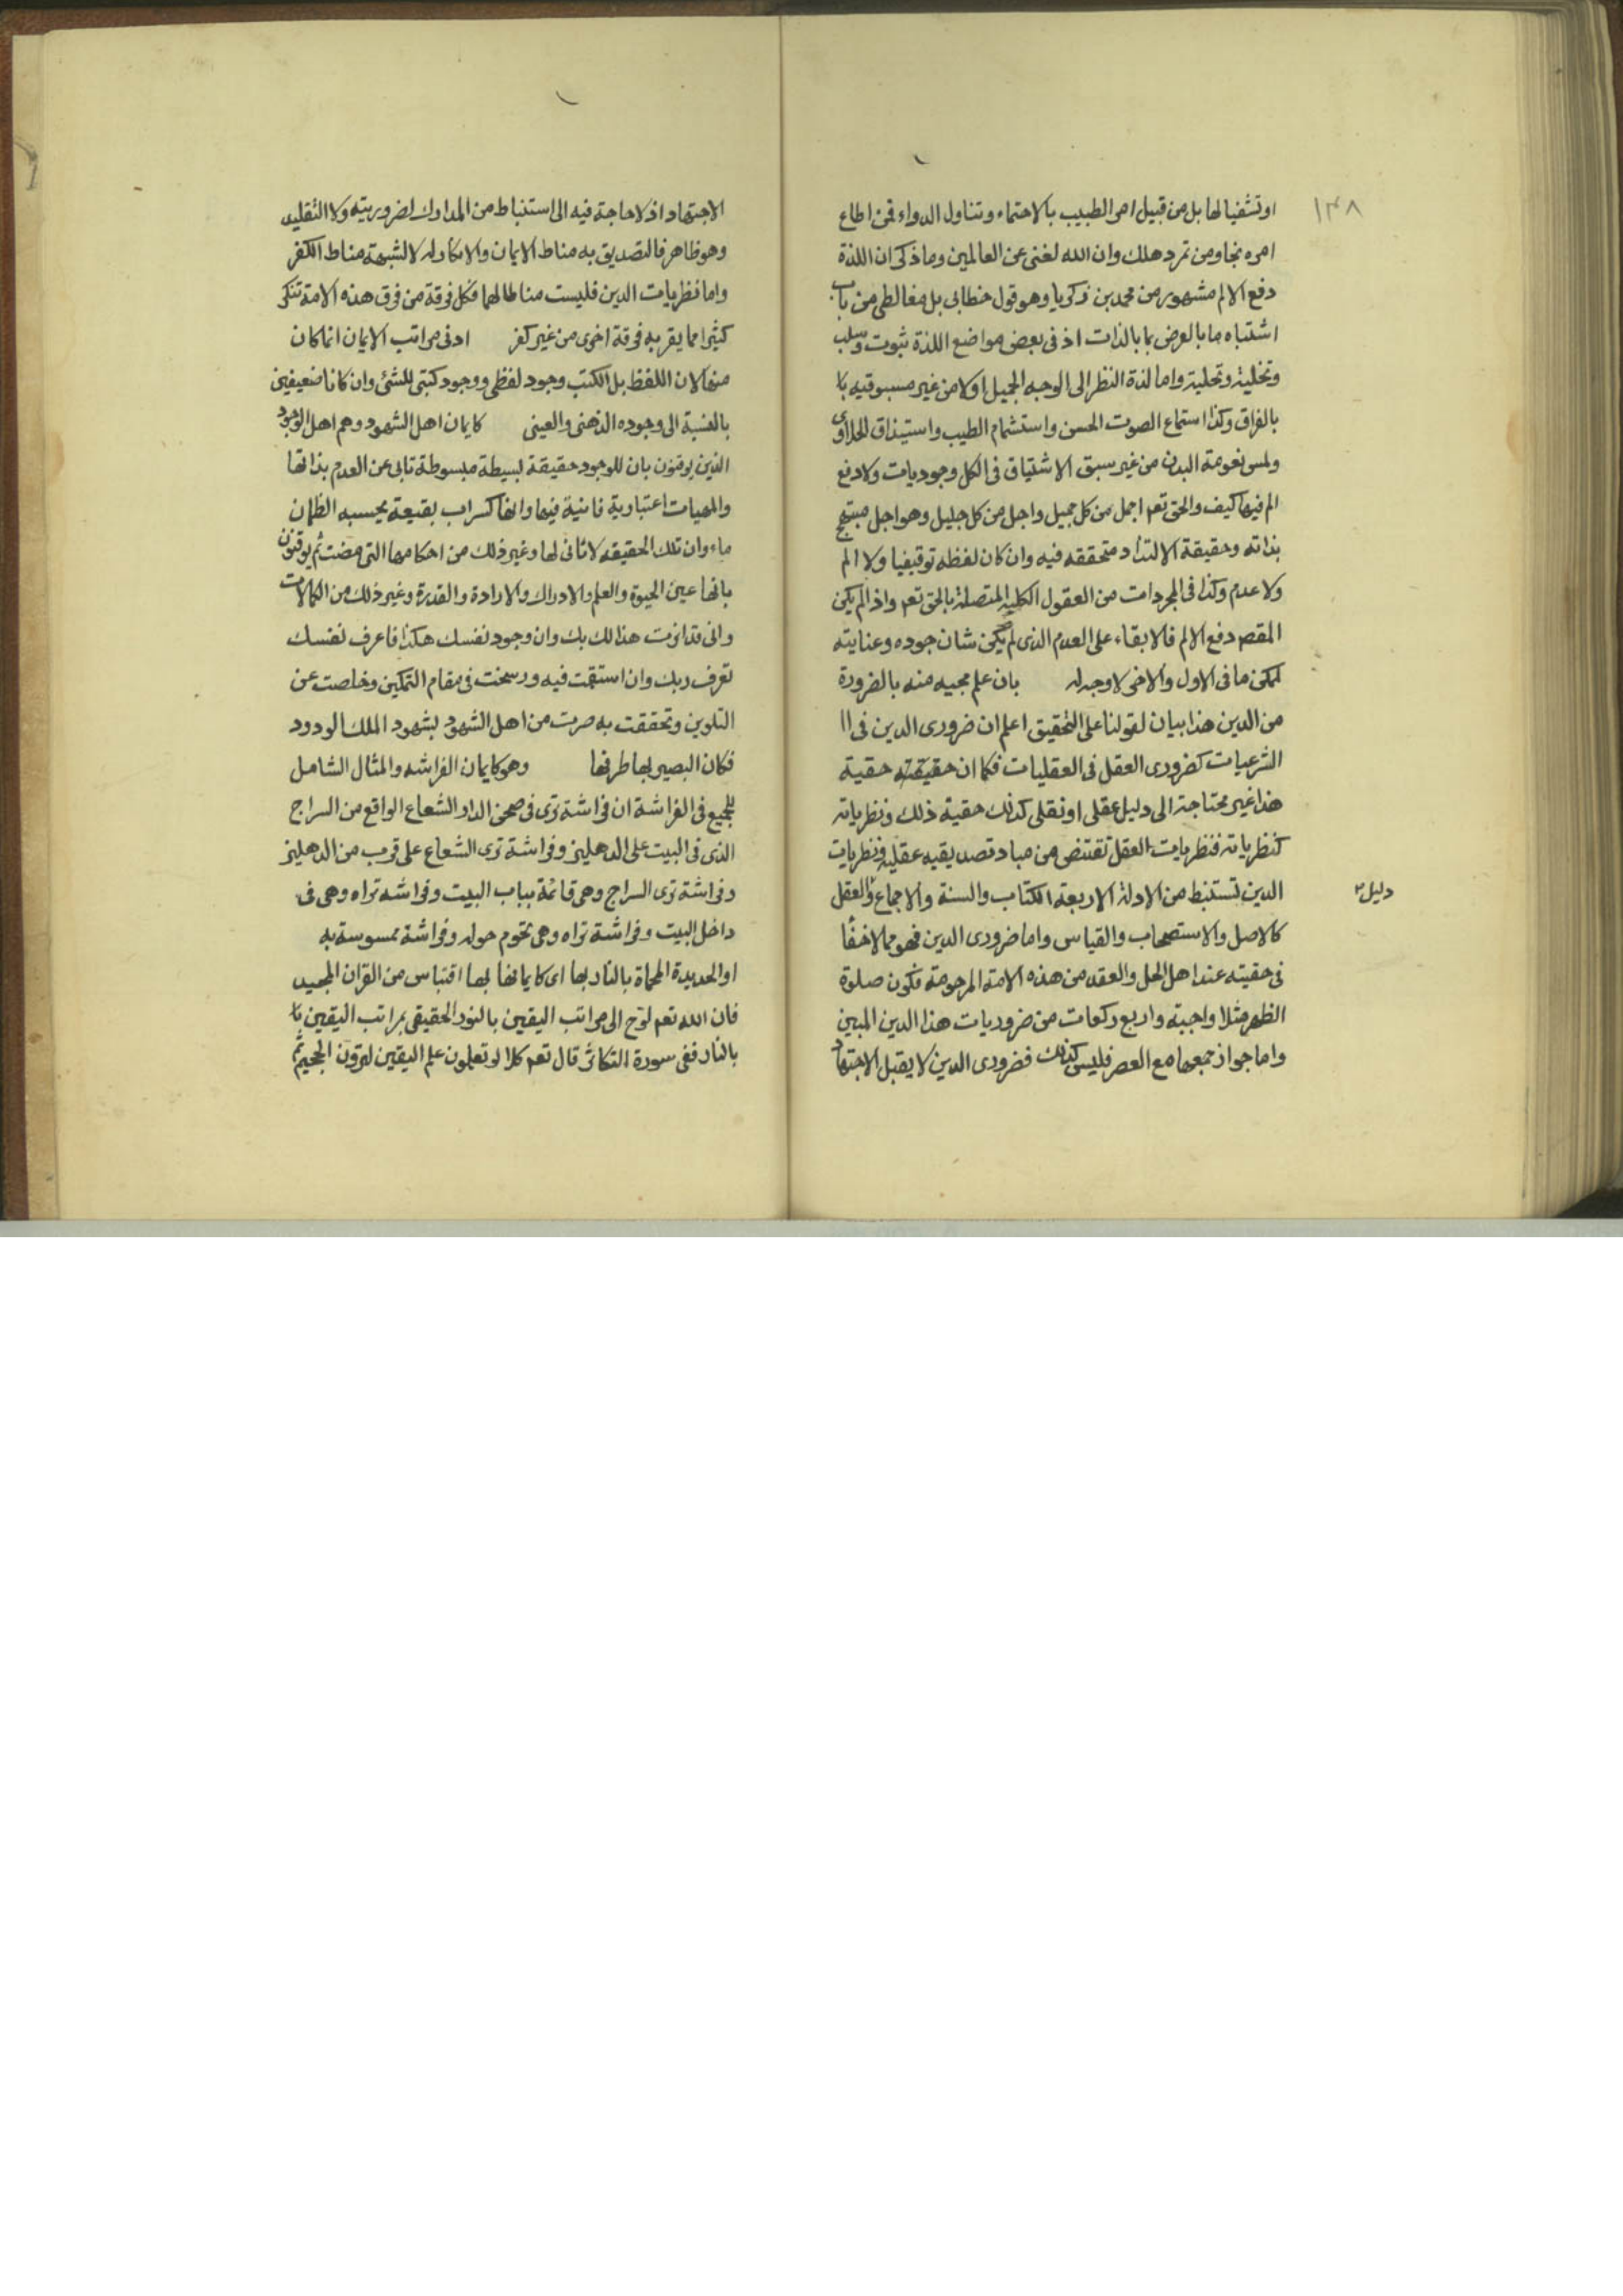 ١٣٨
او تشفيا لها بل من قبيل امر الطبيب بالاحتماء وتناول الدواء فمن اطاع
امره نجا ومن تمرد هلك وان الله لغنى عن العالمين وما ذكر ان اللذة
دفع الالم مشهور من محمد بن زكريا وهو قول خطابى بل مغالطى من باب
اشتباه ما بالعرض بما بالذات اذ فى بعض مواضع اللذة ثبوت وسلب
وتخلية وتحلية واما لذة النظر الى الوجه الجميل اولا من غير مسبوقيه با
بالفراق وكذا استماع الصوت الحسن واستشمام الطيب واستيذاق الحلاوى
ولمس نعومة البدن من غير سبق الاشتياق فى الكل وجوديات ولا دفع
الم فيها كيف والحق تعم اجمل من كل جميل واجل من كل جليل وهو اجل مبتهج
بذاته وحقيقة الالتذاد متحققه فيه وان كان لفظه توقيفيا ولا الم
ولا عدم وكذا فى المجردات من العقول الكليه المتصلة بالحق تعم واذا لم يكن
المقصد دفع الالم فالابقاء على العدم الذى لم يكن شان جوده وعنايته
لممكن ما فى الاول والاخر لا وجه له بان علم مجيه منه بالضرورة
من الدين هذا بيان لقولنا على التحقيق اعلم ان ضرورى الدين فى ا ا
الشرعيات كضرورى العقل فى العقليات فكما ان حقيقته حقية
هذا غير محتاجة الى دليل عقلى او نقلى كذلك حقية ذلك ونظرياته
كنظرياته فنظريات العقل تقتنص من مباد تصديقيه عقليه ونظريات
الدين تستنبط من الادلة الاربعة الكتاب والسنة والاجماع والعقل
دليل
كالاصل والاستصحاب والقياس واما ضرورى الدين فهو مما لا خفا
فى حقيته عند اهل الحل والعقد من هذه الامة المرحومة فكون صلوة
الظهر مثلا واجبة واربع ركعات من ضروريات هذا الدين المبين
واما جواز جمعها مع العصر فليس كذلك فضرورى الدين لا يقبل الاجتهاد
الاجتهاد اذ لا حاجة فيه الى استنباط من المدارك لضروريته ولا التقليد
وهو ظاهر فالتصديق به مناط الايمان والانكار له لا لشبهة مناط الكفر
واما نظريات الدين فليست مناطا لهما فكل فرقة من فرق هذه الامة تنكر
كثيرا مما يقر به فرقة اخرى من غير كفر ادنى مراتب الايمان انما كان
منها لان اللفظ بل الكتب وجود لفظى ووجود كتبى للشئ وان كانا ضعيفين
بالنسبة الى وجوده الذهنى والعينى كايمان اهل الشهود وهم اهل الوجود
الذين يوقنون بان للوجود حقيقة بسيطة مبسوطة تابى عن العدم بذاتها
والمهيات اعتبارية فانية فيها وانها كسراب بقيعة يحسبه الظمان
ماء وان تلك الحقيقه لا ثانى لها وغير ذلك من احكامها التى مضت ثم يوقنون
بانها عين الحيوة والعلم والادراك والارادة والقدرة وغير ذلك من الكمالات
وانى قد اذنت هنالك بك وان وجود نفسك هكذا فاعرف نفسك
تعرف ربك وان استقمت فيه ورسخت فى مقام التمكين وخلصت عن
التلوين وتحققت به صرت من اهل الشهود بشهود الملك الودود
فكان البصير بها طرفها وهو كايمان الفراشه والمثال الشامل
للجميع فى الفراشة ان فراشة ترى فى صحن الدار الشعاع الواقع من السراج
الذى فى البيت على الدهليز وفراشة ترى الشعاع على قرب من الدهليز
وفراشة ترى السراج وهى قائمة بباب البيت وفراشه تراه وهى فى
داخل البيت وفراشة تراه وهى تحوم حوله وفراشة ممسوسة به
او الحديدة المحماة بالنار بها اى كايمانها بها اقتباس من القران المجيد
فان الله تعم لوّح الى مراتب اليقين بالنور الحقيقى بمراتب اليقين با
بالنار ففى سورة التكاثر قال تعم كلا لو تعلمون علم اليقين لترون الجحيم ثم